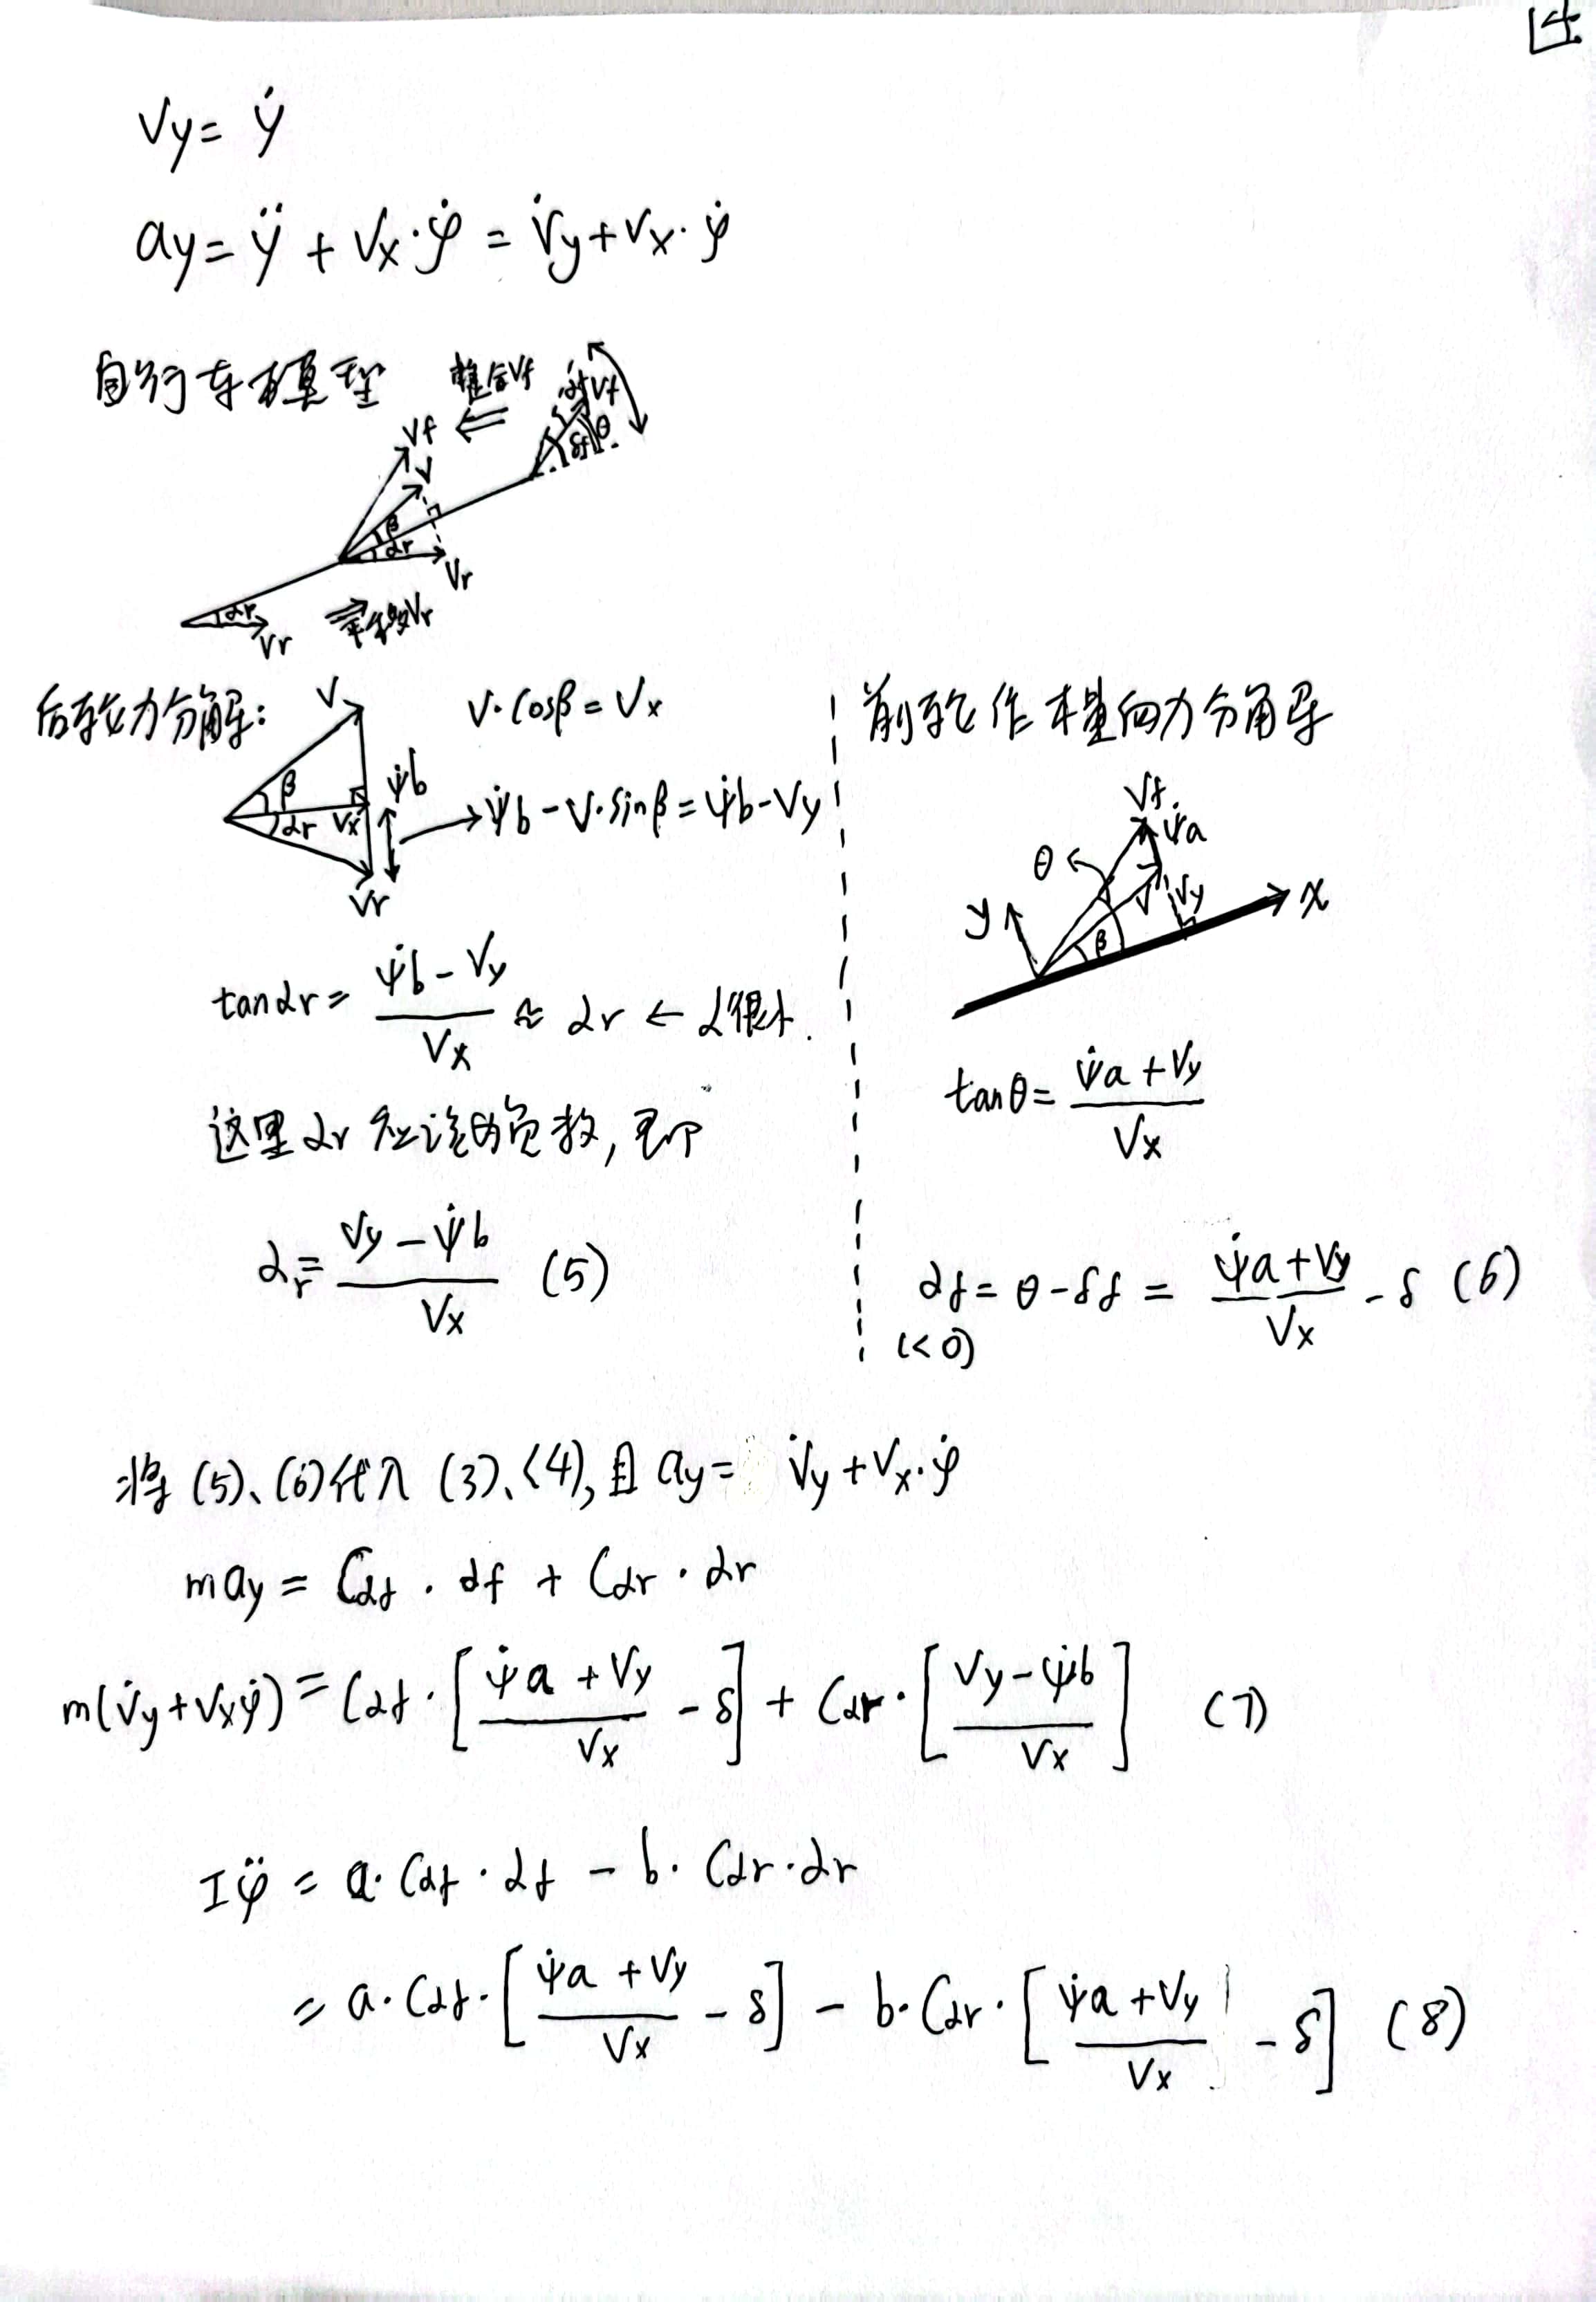 4.
Vy = ẏ
ay = ÿ + Vx·φ̇ = V̇y + Vx·φ̇
自行车模型
Vf
αf Vf
δf θ
Vf
V
β
αr
Vr
αr
Vr
平移Vr
后轮力分解:
V
β
αr Vx
ψ̇b
Vr
V·cosβ = Vx
ψ̇b - V·sinβ = ψ̇b - Vy
tanαr = (ψ̇b - Vy)/Vx ≈ αr ← α很小.
这里αr应该为负数, 即
αr = (Vy - ψ̇b)/Vx (5)
前轮作横向力分解
Vf
ψ̇a
θ
V Vy
y
β
x
tanθ = (ψ̇a + Vy)/Vx
αf = θ - δf = (ψ̇a + Vy)/Vx - δ (6)
(<0)
将 (5)、(6)代入 (3)、(4), 且 ay = V̇y + Vx·φ̇
may = Cαf · αf + Cαr · αr
m(V̇y + Vxφ̇) = Cαf · [(ψ̇a + Vy)/Vx - δ] + Cαr · [(Vy - ψ̇b)/Vx] (7)
Iφ̈ = a·Cαf · αf - b· Cαr·αr
= a·Cαf·[(ψ̇a + Vy)/Vx - δ] - b·Cαr·[(ψ̇a + Vy)/Vx - δ] (8)